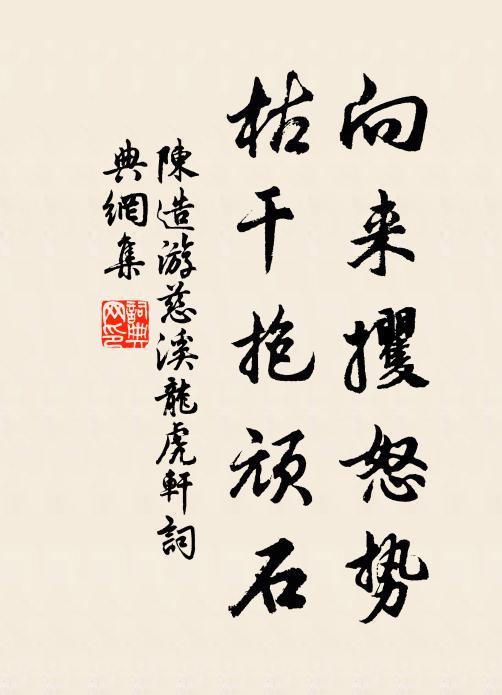 向来攫怒势
枯干抱顽石
陳造游慈溪龍虎軒詞
典網集
詞典
网印